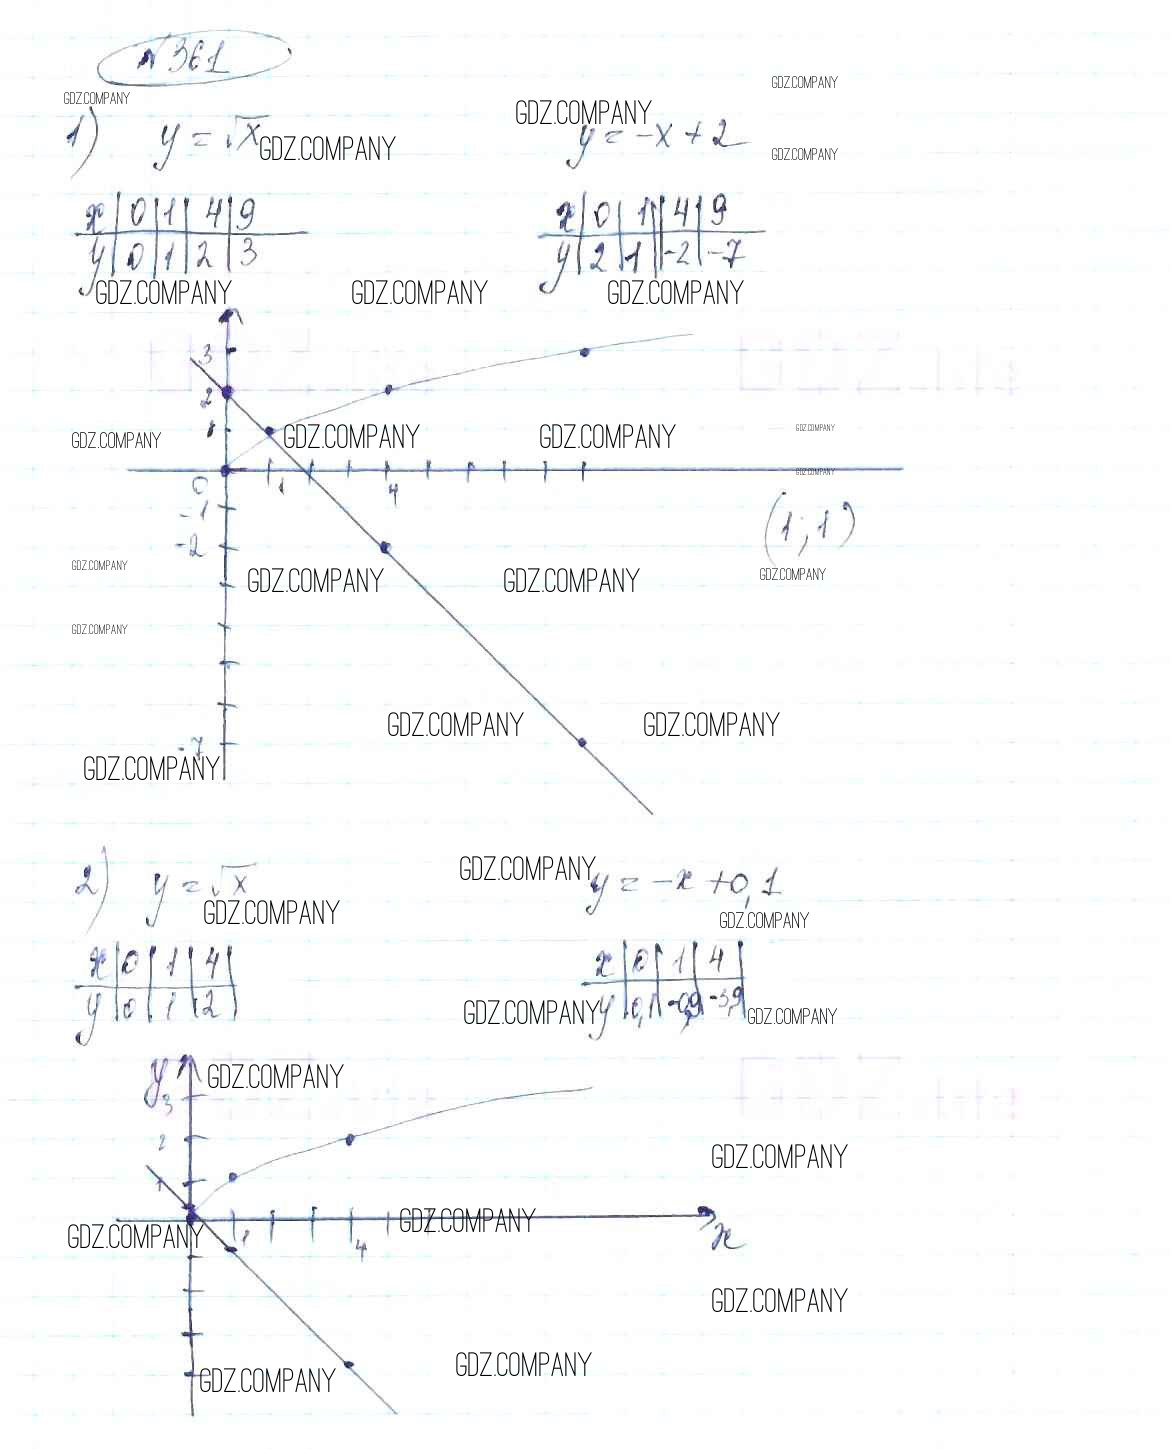 №361
GDZ.COMPANY GDZ.COMPANY
GDZ.COMPANY
1) y = √x GDZ.COMPANY y = -x + 2 GDZ.COMPANY
x | 0 | 1 | 4 | 9 x | 0 | 1 | 4 | 9
y | 0 | 1 | 2 | 3 y | 2 | 1 | -2 | -7
GDZ.COMPANY GDZ.COMPANY GDZ.COMPANY
3
2
1
GDZ.COMPANY GDZ.COMPANY GDZ.COMPANY GDZ.COMPANY
GDZ.COMPANY
0 1 4
-1 (1; 1)
-2
GDZ.COMPANY GDZ.COMPANY GDZ.COMPANY GDZ.COMPANY
GDZ.COMPANY
GDZ.COMPANY GDZ.COMPANY
-7
GDZ.COMPANY
2) y = √x GDZ.COMPANY y = -x + 0,1
GDZ.COMPANY GDZ.COMPANY
x | 0 | 1 | 4 x | 0 | 1 | 4
y | 0 | 1 | 2 GDZ.COMPANY y | 0,1 | -0,9 | -3,9 GDZ.COMPANY
y GDZ.COMPANY
3
2
GDZ.COMPANY
1
GDZ.COMPANY 1 4 GDZ.COMPANY x
GDZ.COMPANY
GDZ.COMPANY GDZ.COMPANY